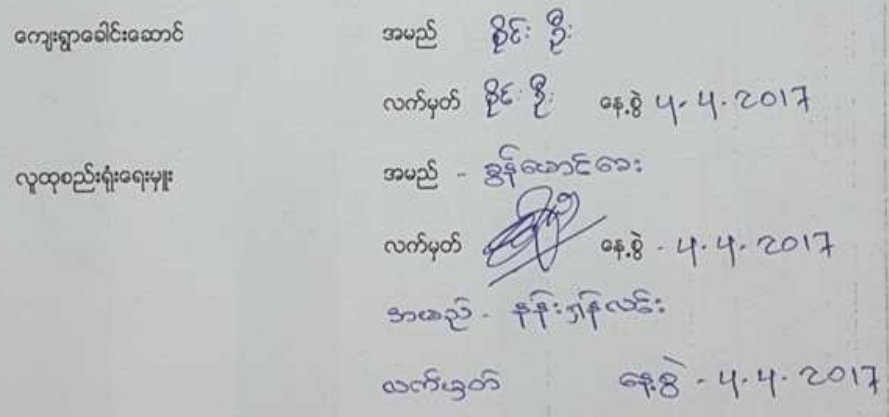 ကျေးရွာခေါင်းဆောင် အမည် စိုင်း ဦး
လက်မှတ် စိုင်း ဦး နေ့စွဲ 4.4.2017
လူထုစည်းရုံးရေးမှူး အမည် - ခွန်အောင်ဒေး
လက်မှတ် နေ့စွဲ - 4.4.2017
အမည် - နန်းဂျန်လင်း
လက်မှတ် နေ့စွဲ - 4.4.2017